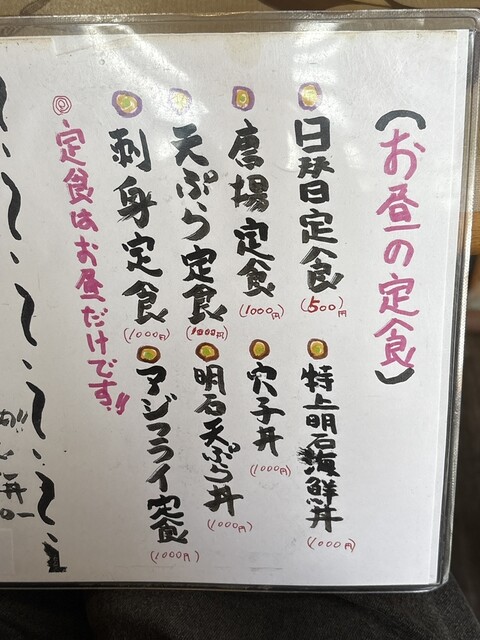 (お昼の定食)
日替定食
(500円)
特上明石海鮮丼
(1000円)
唐揚定食
(1000円)
穴子丼
(1000円)
天ぷら定食
(1000円)
明石天ぷら丼
(1000円)
刺身定食
(1000円)
アジフライ定食
(1000円)
◎定食はお昼だけです!!